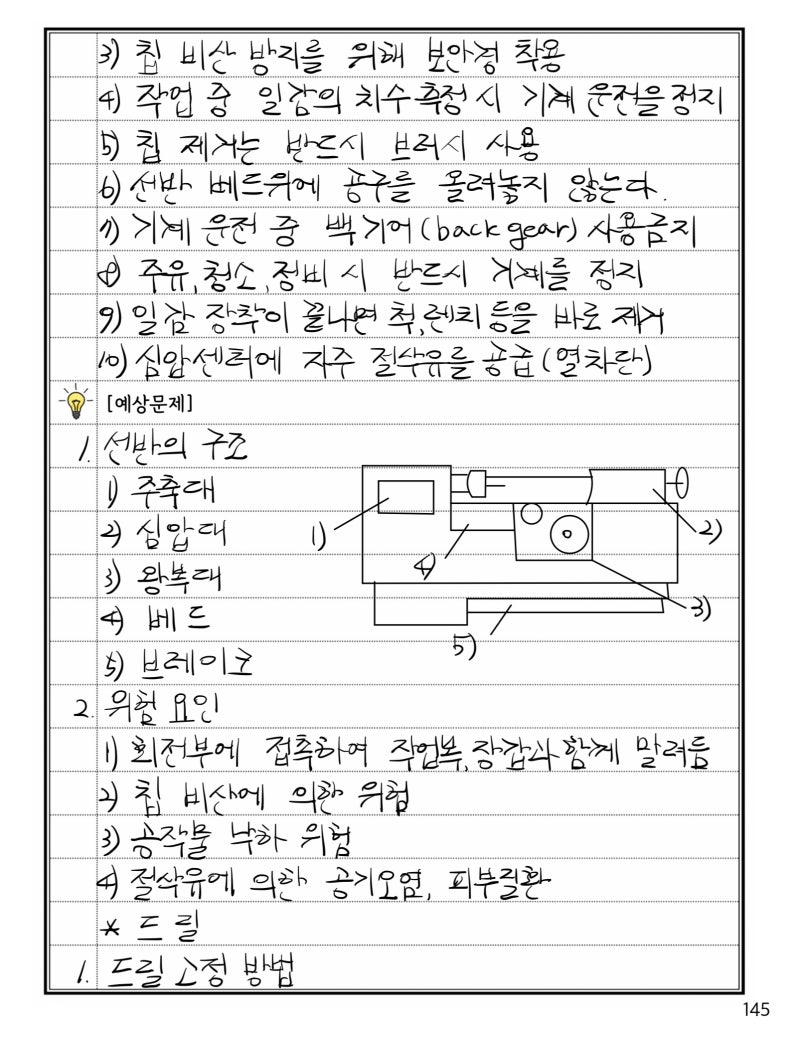 3) 칩 비산 방지를 위해 보안경 착용
4) 작업 중 일감의 치수 측정 시 기계 운전을 정지
5) 칩 제거는 반드시 브러시 사용
6) 선반 베드위에 공구를 올려놓지 않는다.
7) 기계 운전 중 백 기어(back gear) 사용금지
8) 주유, 청소, 정비 시 반드시 기계를 정지
9) 일감 장착이 끝나면 척, 렌치 등을 바로 제거
10) 심압센터에 자주 절삭유를 공급(열차단)
[예상문제]
1. 선반의 구조
1) 주축대
2) 심압대
3) 왕복대
4) 베드
5) 브레이크
1)
2)
4)
3)
5)
2. 위험 요인
1) 회전부에 접촉하여 작업복, 장갑과 함께 말려듬
2) 칩 비산에 의한 위험
3) 공작물 낙하 위험
4) 절삭유에 의한 공기오염, 피부질환
* 드릴
1. 드릴 고정 방법
145